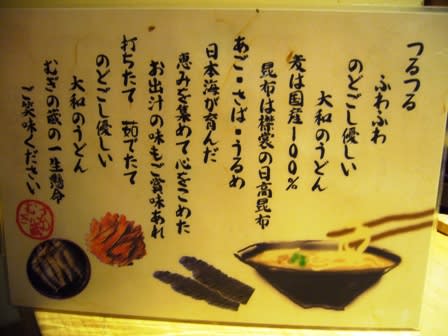 つるつる
ふわふわ
のどごし優しい
大和のうどん
麦は国産100%
昆布は襟裳の日高昆布
あご・さば・うるめ
日本海が育んだ
恵みを集めて心をこめた
お出汁の味もご賞味あれ
打ちたて 茹でたて
のどごし優しい
大和のうどん
むぎの蔵の一生懸命
ご笑味ください